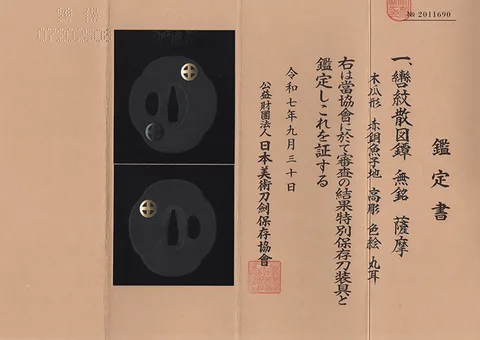 № 2011690
鑑定書
一、轡紋散図鐔 無銘 薩摩
木瓜形 赤銅魚子地 高彫 色絵 丸耳
右は當協會に於て審査の結果特別保存刀装具と
鑑定しこれを証する
令和七年九月三十日
公益財團法人 日本美術刀剣保存協會